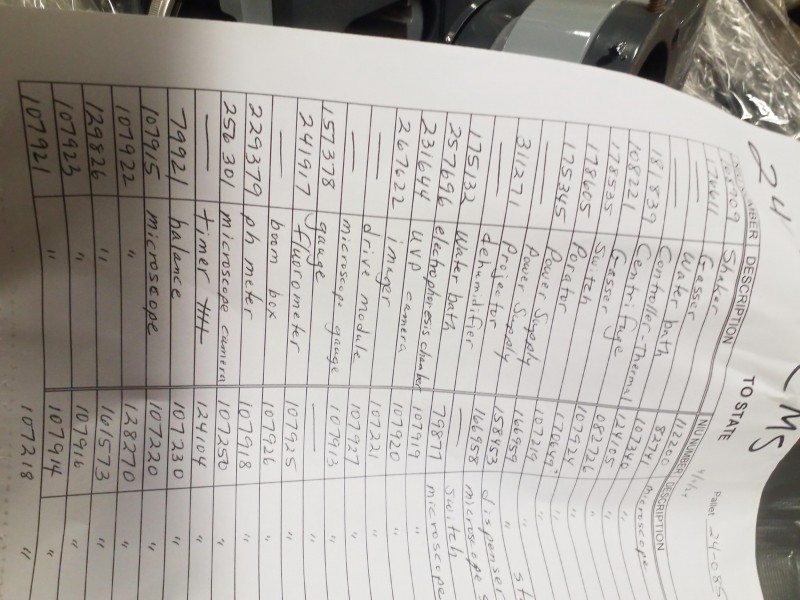 24 CMS
Pallet 24-085
TO STATE
NIU NUMBER DESCRIPTION NIU NUMBER DESCRIPTION
Shaker 112200
Gasser 82741 microscope
— Water bath 107340 "
— Controller-Thermal 124105 "
181839 Centrifuge 082736 "
108221 Gasser 107924 "
178535 Switch
178605 Porator 107219 "
175345 Power Supply 166959 "
— Power Supply 158453 dispenser
311271 Projector 166958 microscope
— dehumidifier — switch
175132 Water bath 79877 microscope
257696 electrophoresis chamber 107919 "
231644 UVP 107920 "
267622 imager camera 107221 "
— drive module 107927 "
— microscope gauge 107913 "
157378 gauge — "
241917 fluorometer 107925 "
— boom box 107926 "
229379 ph meter 107918 "
256301 microscope camera 107250 "
— timer 124104 "
79921 balance 107230 "
107915 microscope 107220 "
107922 " 128270 "
129826 " 161573 "
107923 " 107916 "
107921 " 107914 "
107218 "